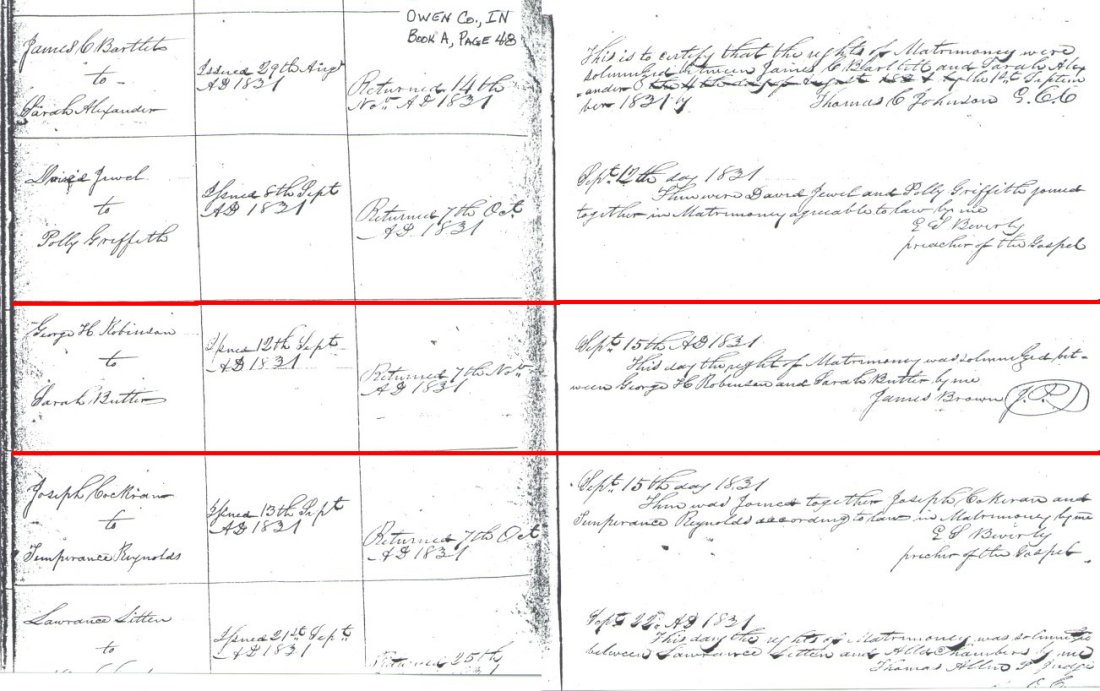 OWEN CO., IN
BOOK A, PAGE 48
James C Bartlett
to
Sarah Alexander
Issued 29th Augt
AD 1831
Returned 14th
Novr AD 1831
This is to certify that the rights of Matrimoney were
solemnized between James C Bartlett and Sarah Alex
ander the 1st Septem
ber 1831 by
Thomas C Johnson
David Jewel
to
Polly Griffith
Issued 8th Sept
AD 1831
Returned 7th Oct.
AD 1831
Sept. 12th day 1831
Then were David Jewel and Polly Griffith joined
together in Matrimoney agreeable to law by me
E S Beverly
preacher of the Gospel
George H Robinson
to
Sarah Butler
Issued 12th Sept
AD 1831
Returned 7th Novr
AD 1831
Sept. 15th AD 1831
This day the right of Matrimoney was solemnized bet-
ween George H Robinson and Sarah Butler by me
James Brown J.P.
Joseph Cockran
to
Temperance Reynolds
Issued 13th Sept
AD 1831
Returned 7th Oct
AD 1831
Sept. 15th day 1831
Then was Joined together Joseph Cockran and
Temperance Reynolds according to law in Matrimoney by me
E S Beverly
precher of the Gospel
Lawrance Litten
to
Issued 21st Sept.
AD 1831
Returned 25th
Sept. 22d. AD 1831
This day the rights of Matrimoney was solemnized
between Lawrance Litten and Chambers by me
Thomas Allen Judge